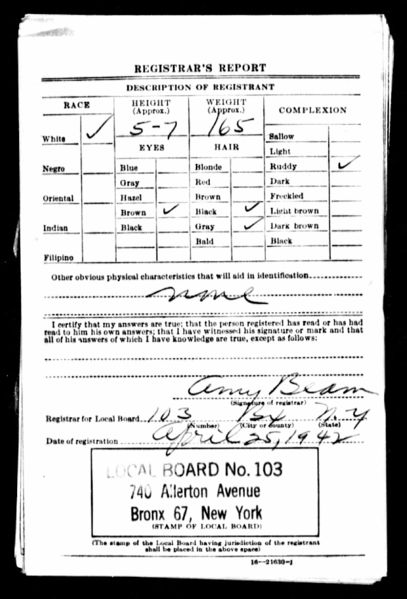 REGISTRAR'S REPORT
DESCRIPTION OF REGISTRANT
RACE
HEIGHT (Approx.)
WEIGHT (Approx.)
COMPLEXION
White ✓
5-7
165
Sallow
EYES
HAIR
Light
Negro
Blue
Blonde
Ruddy ✓
Gray
Red
Dark
Oriental
Hazel
Brown
Freckled
Brown ✓
Black ✓
Light brown
Indian
Black
Gray ✓
Dark brown
Bald
Black
Filipino
Other obvious physical characteristics that will aid in identification
none
I certify that my answers are true; that the person registered has read or has had
read to him his own answers; that I have witnessed his signature or mark and that
all of his answers of which I have knowledge are true, except as follows:
Amy Beam
(Signature of registrar)
Registrar for Local Board 103 Bx N.Y
(Number) (City or county) (State)
Date of registration April 25, 1942
LOCAL BOARD No. 103
740 Allerton Avenue
Bronx 67, New York
(STAMP OF LOCAL BOARD)
(The stamp of the Local Board having jurisdiction of the registrant
shall be placed in the above space)
16—21630-1